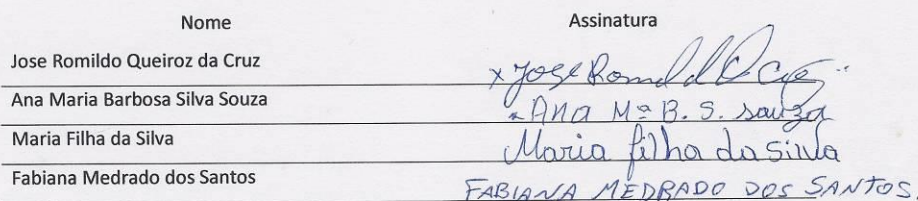 Nome Assinatura
Jose Romildo Queiroz da Cruz x Jose Romild Q Cruz
Ana Maria Barbosa Silva Souza x Ana Mª B. S. Souza
Maria Filha da Silva Maria filha da Silva
Fabiana Medrado dos Santos FABIANA MEDRADO DOS SANTOS.